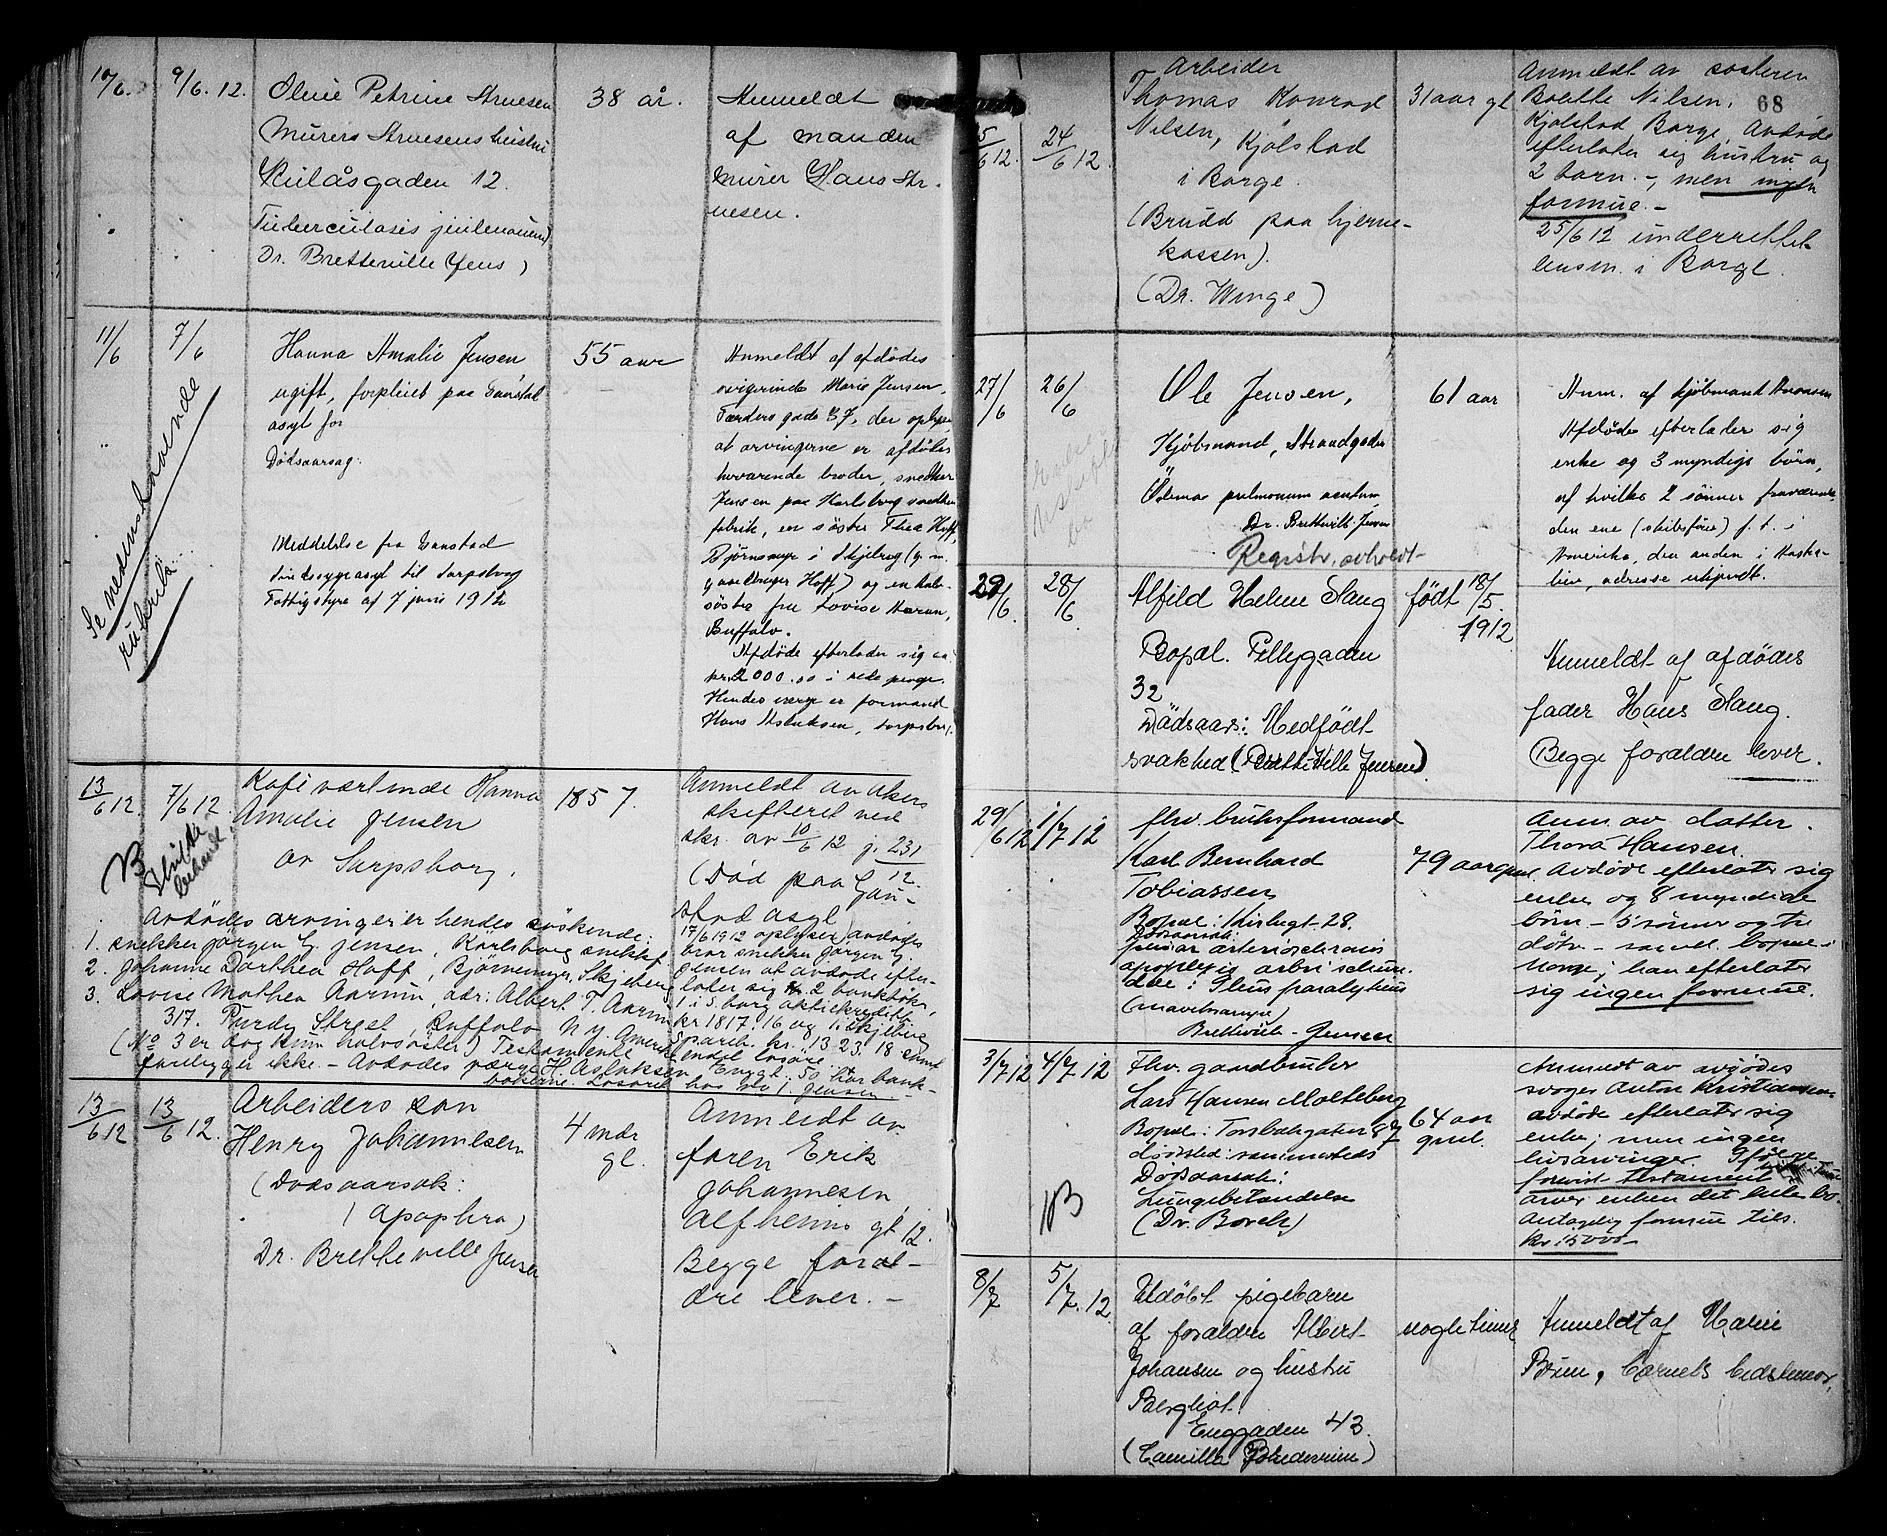 10/6. 9/6.12. Oline Petrine Arnesen 38 år. Anmeldt
Murers Arnesens hustru af manden
12 murer Hans Ar-
nesen.
Tuberculosis
Dr. Bretteville Jens)
11/6 7/6 Hanna Amalie Jensen 55 aar Anmeldt af afdødes
ugift, forpleiet paa Gaustad svigerinde Marie Jensen,
asyl for gade 37, der oplyser
Dødsaarsag: at arvingerne er afdødes
broder, snekker
Jensen paa Karlsborg snedker
fabrik, en søster Thea Hoff,
Meddelelse fra Gaustad Bjørnemyr i Skjeberg (g. m.
Sindssygeasyl til Sarpsborg Hoff) og en halv-
Fattigstyre af 7 juni 1912 søster fru Lovise Aarum,
Buffalo.
Afdøde efterlader sig ca.
kr. 2000.00 i rede penge.
Hendes værge er formand
Hans Aslaksen, Sarpsborg.
Se nedenstaaende
rubrik
13/6 12. 7/6 12 Kafeværtinde Hanna 1857. Anmeldt av Akers
Amalie Jensen skifteret ved
av Sarpsborg. skr. av 10/6 12 j. 231/12.
(Død paa Gau-
stad asyl
Avdødes arvinger er hendes søskende:
1. snekker Jørgen G. Jensen, Karlsborg snekkf.
2. Johanne Dorthea Hoff, Bjørnemyr, Skjeberg
3. Lovise Mathea Aarum, adr: Albert T. Aarum
317. Purdy Street, Buffalo N. Y. Amerika
(No 3 er dog kun halvsøster) Testamente
foreligger ikke. - Avdødes værge H. Aslaksen
17/6 1912 oplyser avdødes
bror snekker Jørgen G.
Jensen at avdøde efter-
later sig 2 bankbøker,
1 i S.borg aktiekreditb.
kr 1817.16 og 1 i Skjeberg
Spareb. kr. 1323.18 samt
endel løsøre.
bøkerne. Løsøret hos No 1 Jensen
13/6 12 13/6 12. Arbeiders søn 4 mdr Anmeldt av
Henry Johannesen gl. faren Erik
(Dødsaarsak: Johannesen
Alfheims gt. 12.
Dr. Bretteville Jensen Begge foræl-
dre lever. -
68
25/6 12. 24/6 12. Arbeider 31 aar gl Anmeldt av søsteren
Thomas Konrad Nilsen,
Nilsen, Kjølstad Kjølstad, Borge. Avdøde
i Borge. efterlater sig hustru og
(Brudd paa hjerne- 2 barn. -, men ingen
kassen). formue. -
(Dr. Winge) 25/6 12 underrettet
lensm. i Borge.
27/6 26/6 Ole Jensen, 61 aar Anm. af kjøbmand
Kjøbmand, Strandgaden Afdøde efterlader sig
Ødema pulmonum acutum enke og 3 myndige børn,
Dr. Bretteville Jensen af hvilke 2 sønner fraværende
Registr. avholdt den ene (skibsfører) f. t. i
Amerika, den anden i
adresse ukjendt.
29/6 28/6 Alfild Helene Haug født 18/5. 1912
Bopæl. Pellygaden Anmeldt af afdødes
32 fader Hans Haug.
Dødsaars: Medfødt Begge forældre lever.
svakhed (Bretteville Jensen)
29/6 12 1/7 12 fhv. bruksformand 79 aar gml Anm. av datter
Karl Bernhard Thora Hansen.
Tobiassen Avdøde efterlater sig
Bopæl: Kirkegt. 28. enke og 8 myndige
Dødsaarsak: børn - 5 sønner og tre
arteriosclerosis døtre - samtl. bopæl i
apoplexia Norge; han efterlater
Ileus paralyticus sig ingen formue.
Bretteville-Jensen
3/7 12 4/7 12 Fhv. gaardbruker 64 aar gml. Anmeldt av avdødes
Lars Hansen Molteberg svoger Anton Kristiansen
Bopæl: avdøde efterlater sig
dødssted: sammesteds enke; men ingen
Dødsaarsak: livsarvinger. Ifølge
Lungebetændelse testament
(Dr. Borch) arver enken det hele bo.
Antagelig formue tils.
kr 15000-
8/7 5/7. 12. Udøbt pigebarn nogle timer Anmeldt af Marie
af forældre Albert Brun, barnets bedstemor.
Johansen og hustru
Bergliot.
Enggaden 43.